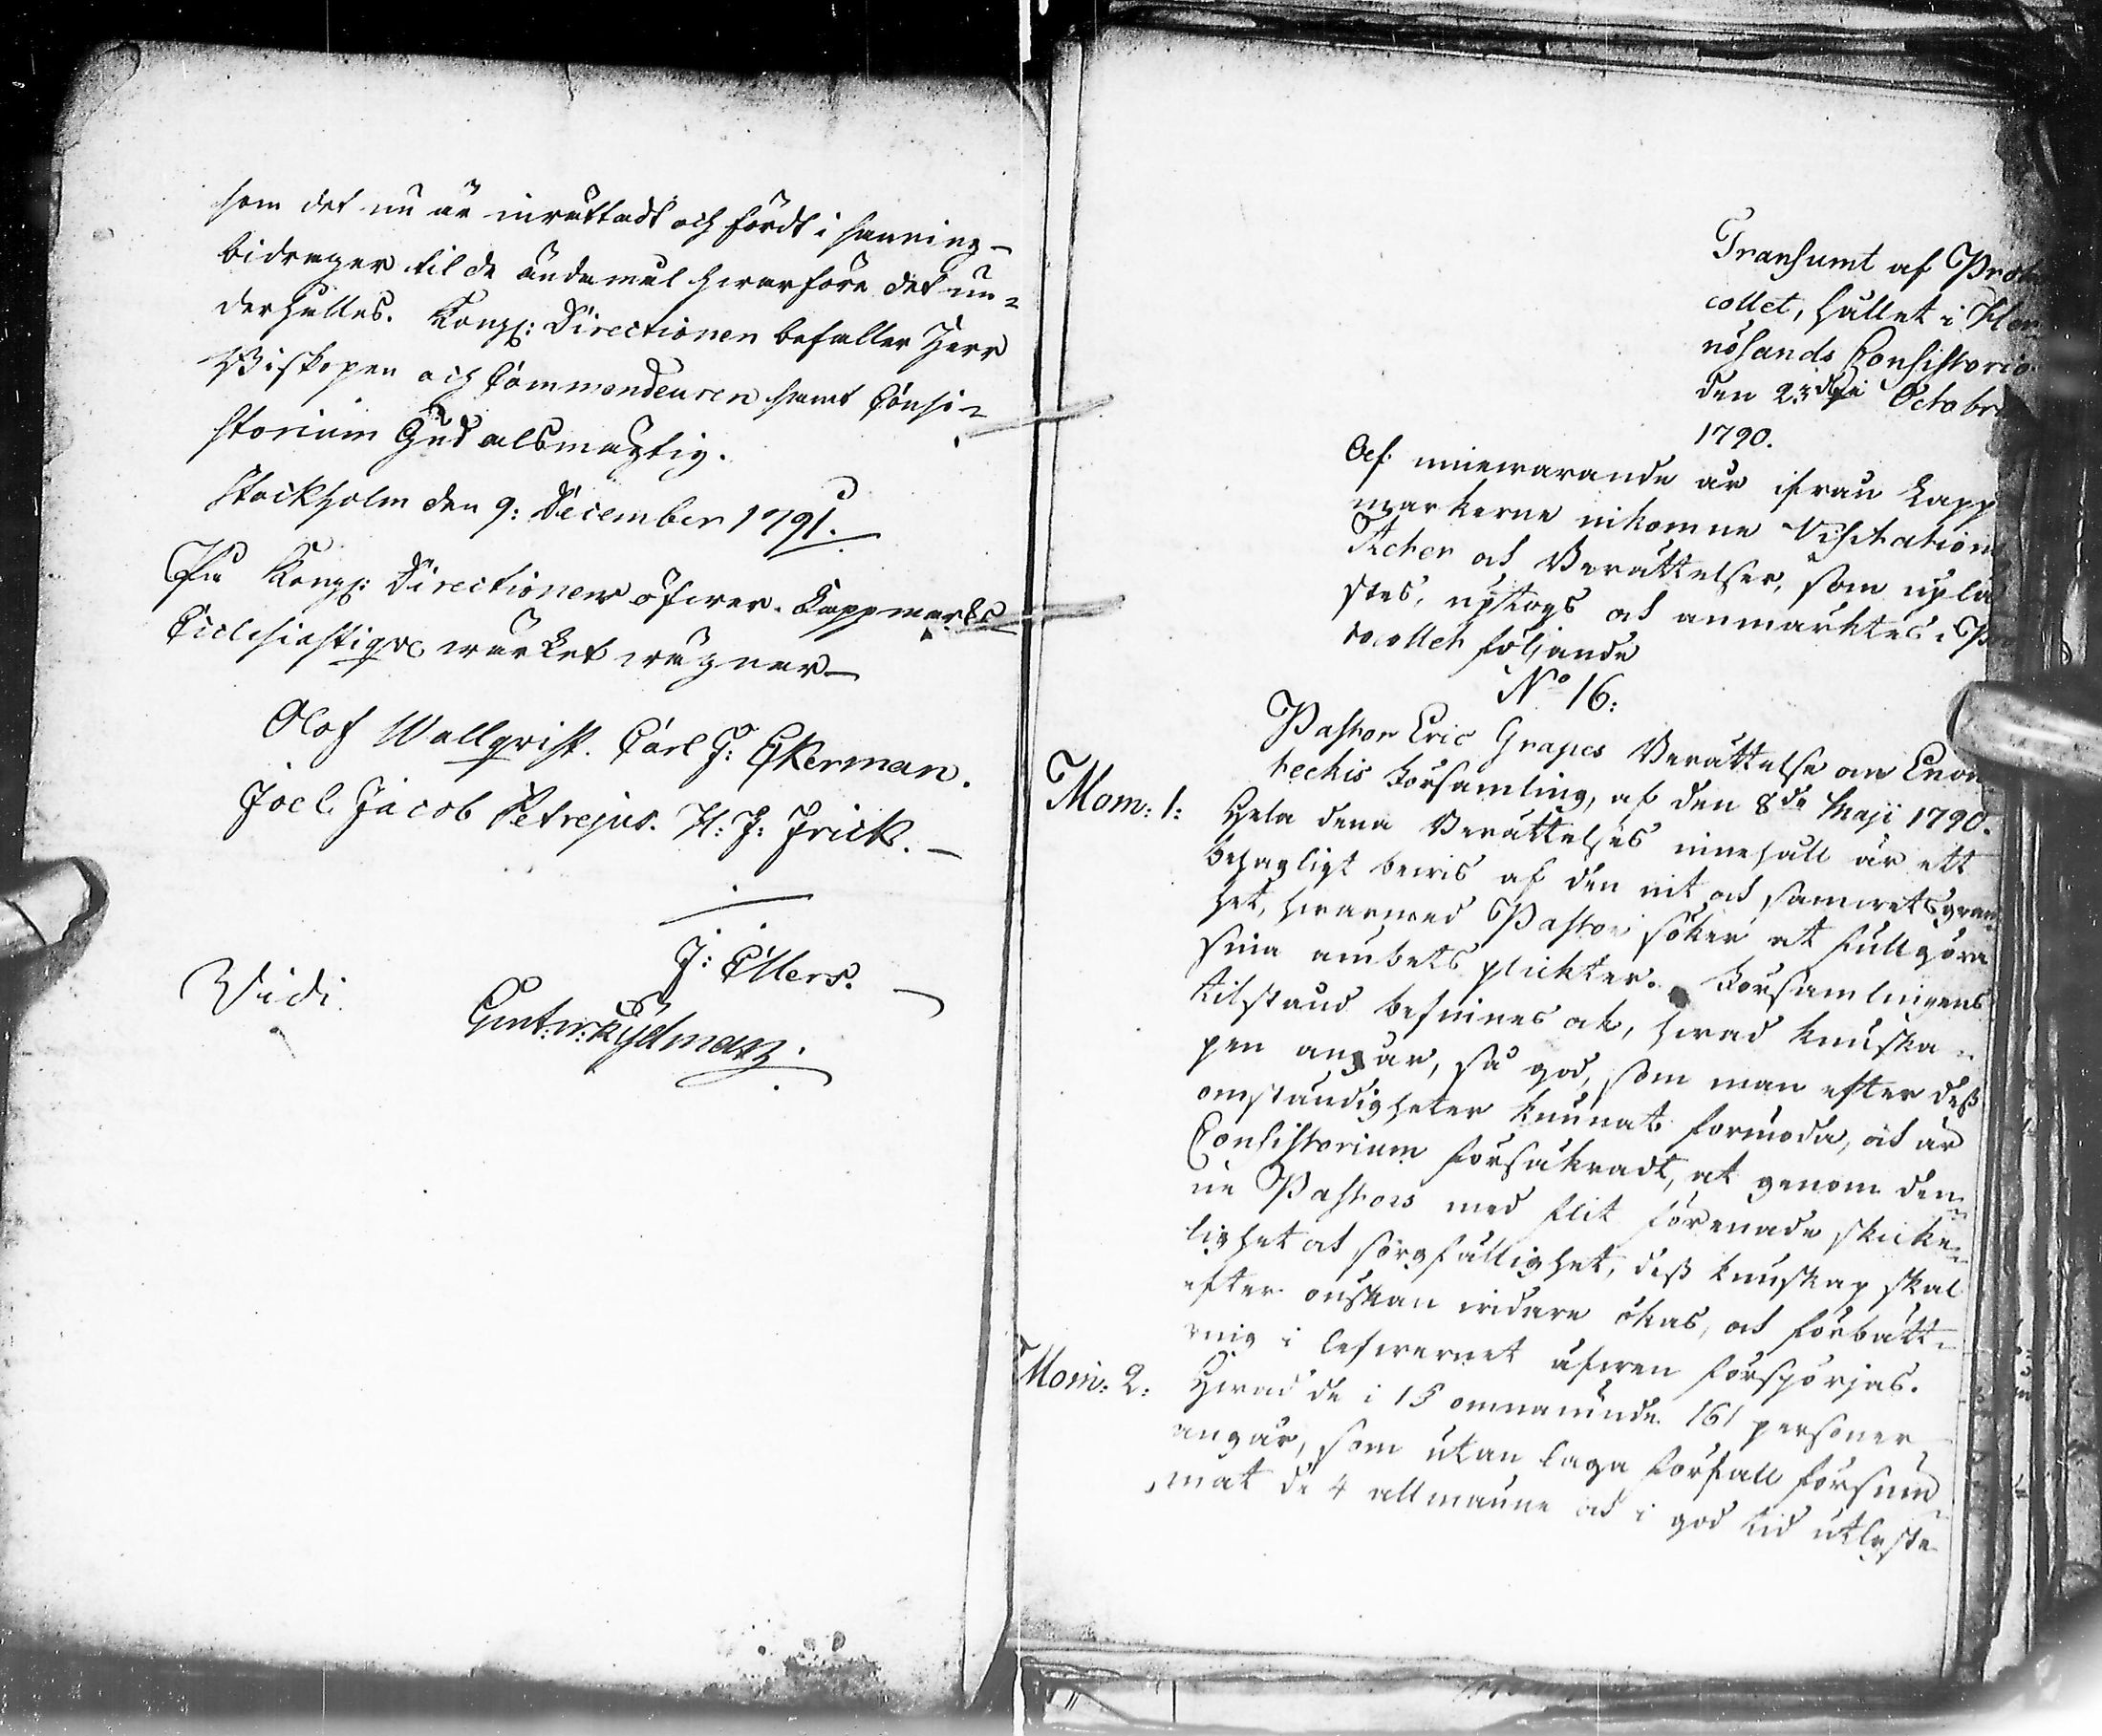 som det nu är inrättadt och fördt i sanning
bidrager til de ändamål hwarföre det un=
derhålles. Kongl: Directionen befaller Herr
Biskopen och Commendeuren samt Consi=
storium Gud alsmägtig.
Stockholm den 9: December 1791.
På Kongl: Directionens öfwer Lappmarks
Ecclesiastique wärket wägnar
Olof Wallqvist. Carl G: Ekerman.
Joel Jacob Petrejus. H: J: Frick.
J: Ellers.
Vidi
Transumt af Proto
collet, hållet i Her
nösands Consistorio
den 23die Octobr
1790.
Af innewarande år ifrån Lapp
markerne inkomne Visitations
Acter och Berättelser, som uplä
stes, uptogs och anmärktes i Pro
tocollet följande
No 16:
Pastor Eric Grapes Berättelse om Enon
teckis Församling, af den 8de Maji 1790.
Mom: 1: Hela dena Berättelses innehåll är ett
behagligt bewis af den nit och samwetsgran
het, hwarmed Pastor söker at fullgöra
sina ämbets plichter. Församlingens
tilstånd befinnes ock, hwad kunska=
pen angår, så god, som man efter dess
omständigheter kunnat förmoda, och är
Consistorium försäkradt, at genom den=
ne Pastors med flit förenade skicke=
lighet och sorgfällighet, dess kunskap skal
efter önskan widare ökas, och förbätt=
ring i lefwernet äfwen förspörjas.
Mom: 2: Hwad de i 15 omnämnde 161 personer
angår, som utan laga förfall försum
mat de 4 allmänne och i god tid utlyste